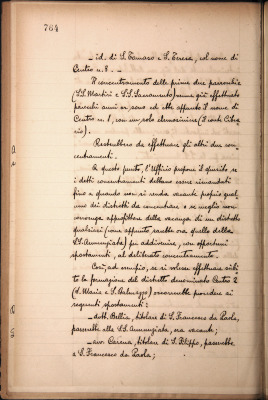 764
- id. di S. Tomaso e S. Teresa, col nome di
Centro n. 8. -
Il concentramento delle prime due parrocchie
(SS. Martiri e SS. Sacramento) venne già effettuato
parecchi anni or sono ed ebbe appunto il nome di
Centro n. 1, con un solo elemosiniere (Conte Cibra
rio).
Resterebbero da effettuare gli altri due con
centramenti.
A questo punto, l'Ufficio propone il quesito, se
i detti concentramenti debbano essere rimandati
fino a quando non si renda vacante proprio qual
uno dei distretti da concentrare o se meglio non
convenga approfittare della vacanza di un distretto
qualsiasi (come appunto sarebbe ora quello della
SS. Annunziata) per addivenire, con opportuni
spostamenti, al deliberato concentramento.
Così, ad esempio, se si volesse effettuare subi
to la formazione del distretto denominato Centro 2
(S. Maria e S. Dalmazzo) occorrerebbe procedere ai
seguenti spostamenti:
- dott. Bellia, titolare di S. Francesco da Paola,
passerebbe alla SS. Annunziata, ora vacante;
- avv. Carena, titolare di S. Filippo, passerebbe
a S. Francesco da Paola;